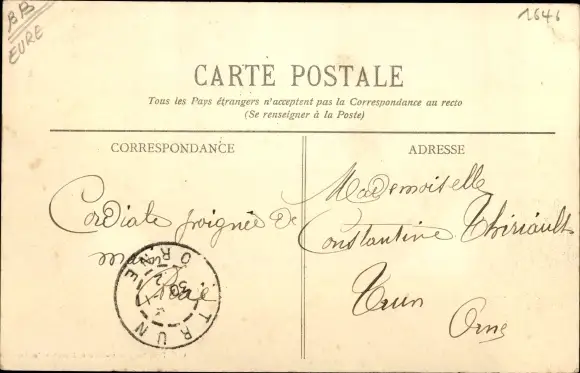 BB
EURE
1646
CARTE POSTALE
Tous les Pays étrangers n'acceptent pas la Correspondance au recto
(Se renseigner à la Poste)
CORRESPONDANCE
Cordiale poignée de
ADRESSE
Mademoiselle
Constantine Thiriault
Trun
Orne
TRUN
ORNE